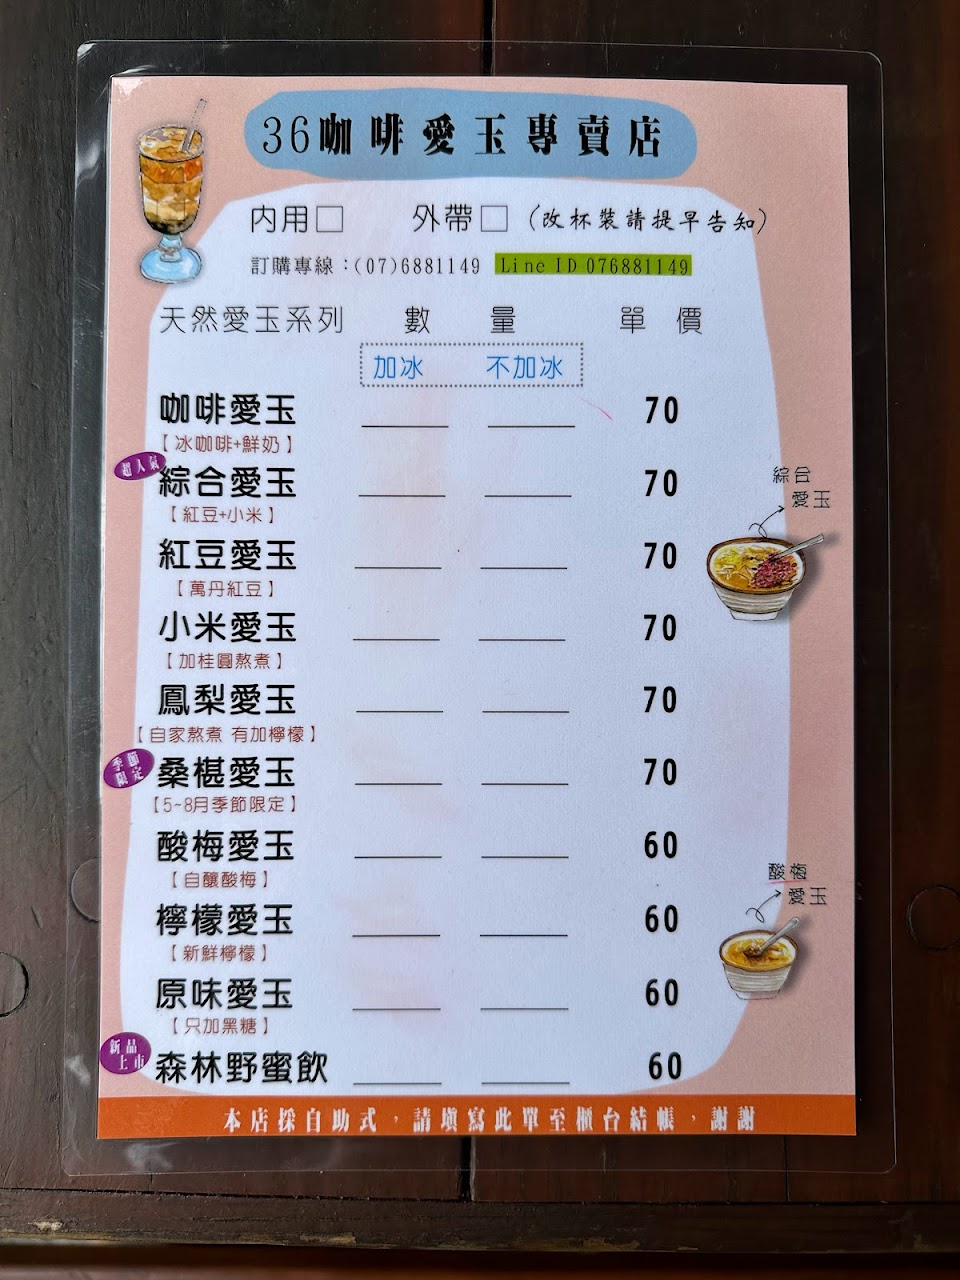 36咖啡愛玉專賣店
內用□ 外帶□ (改杯裝請提早告知)
訂購專線：(07)6881149 Line ID 076881149
天然愛玉系列 數量 單價
加冰 不加冰
咖啡愛玉 70
【冰咖啡+鮮奶】
超人氣
綜合愛玉 70
【紅豆+小米】
綜合
愛玉
紅豆愛玉 70
【萬丹紅豆】
小米愛玉 70
【加桂圓熬煮】
鳳梨愛玉 70
【自家熬煮 有加檸檬】
季節
限定
桑椹愛玉 70
【5~8月季節限定】
酸梅愛玉 60
【自釀酸梅】
酸梅
愛玉
檸檬愛玉 60
【新鮮檸檬】
原味愛玉 60
【只加黑糖】
新品
上市
森林野蜜飲 60
本店採自助式，請填寫此單至櫃台結帳，謝謝